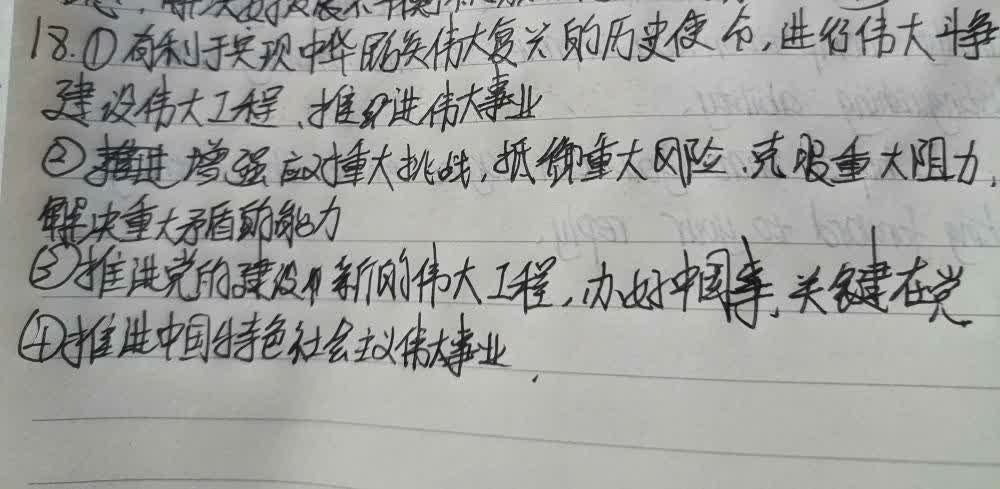 解决好发展不平衡
18.①有利于实现中华民族伟大复兴的历史使命,进行伟大斗争
建设伟大工程、推进伟大事业
②增强应对重大挑战,抵御重大风险、克服重大阻力、
解决重大矛盾的能力
③推进党的建设新的伟大工程,办好中国事,关键在党
④推进中国特色社会主义伟大事业.